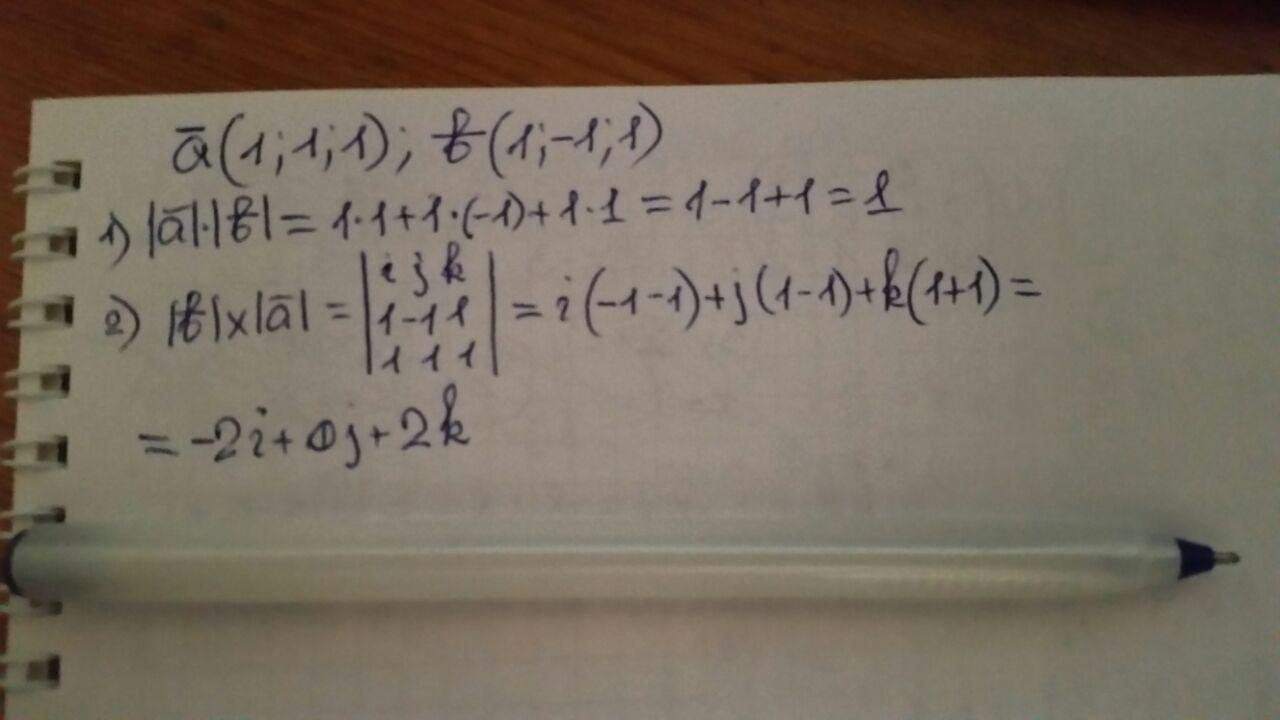 ā(1;1;1); b̄(1;-1;1)
1) |ā|·|b̄| = 1·1+1·(-1)+1·1 = 1-1+1 = 1
2) |b̄|×|ā| = |i j k| = i(-1-1)+j(1-1)+k(1+1) =
|1 -1 1|
|1 1 1|
= -2i+0j+2k